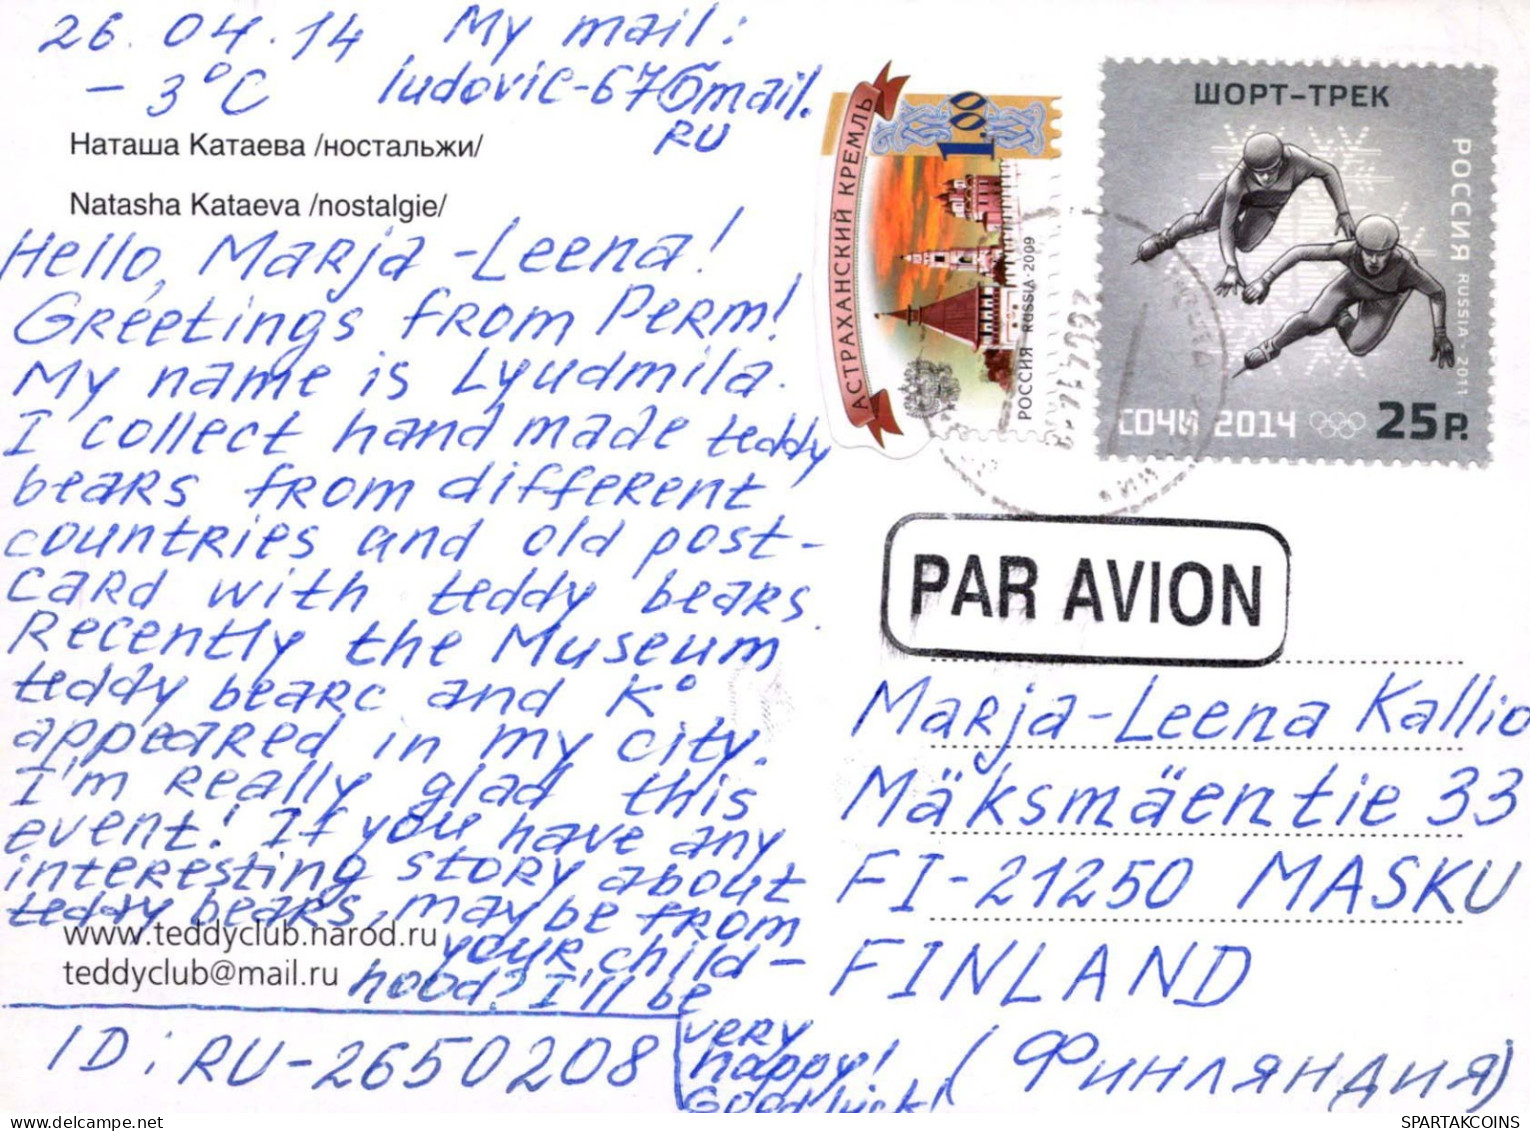 26.04.14 My mail:
-3°C ludovic-67@mail.
RU
Наташа Катаева /ностальжи/
Natasha Kataeva /nostalgie/
Hello, Marja-Leena!
Greetings from Perm!
My name is Lyudmila.
I collect hand made teddy
bears from different
countries and old post-
card with teddy bears.
Recently the Museum
teddy bearc and K°
appeared in my city.
I'm really glad this
event! If you have any
interesting story about
teddy bears, maybe from
your child-
hood? I'll be
very
happy!
Good luck!
www.teddyclub.narod.ru
teddyclub@mail.ru
ID: RU-2650208
АСТРАХАНСКИЙ КРЕМЛЬ
1.00
РОССИЯ RUSSIA·2009
ШОРТ-ТРЕК
РОССИЯ RUSSIA-2011
СОЧИ 2014
25 Р.
PAR AVION
Marja-Leena Kallio
Mäksmäentie 33
FI-21250 MASKU
FINLAND
(Финляндия)
SPARTAKCOINS